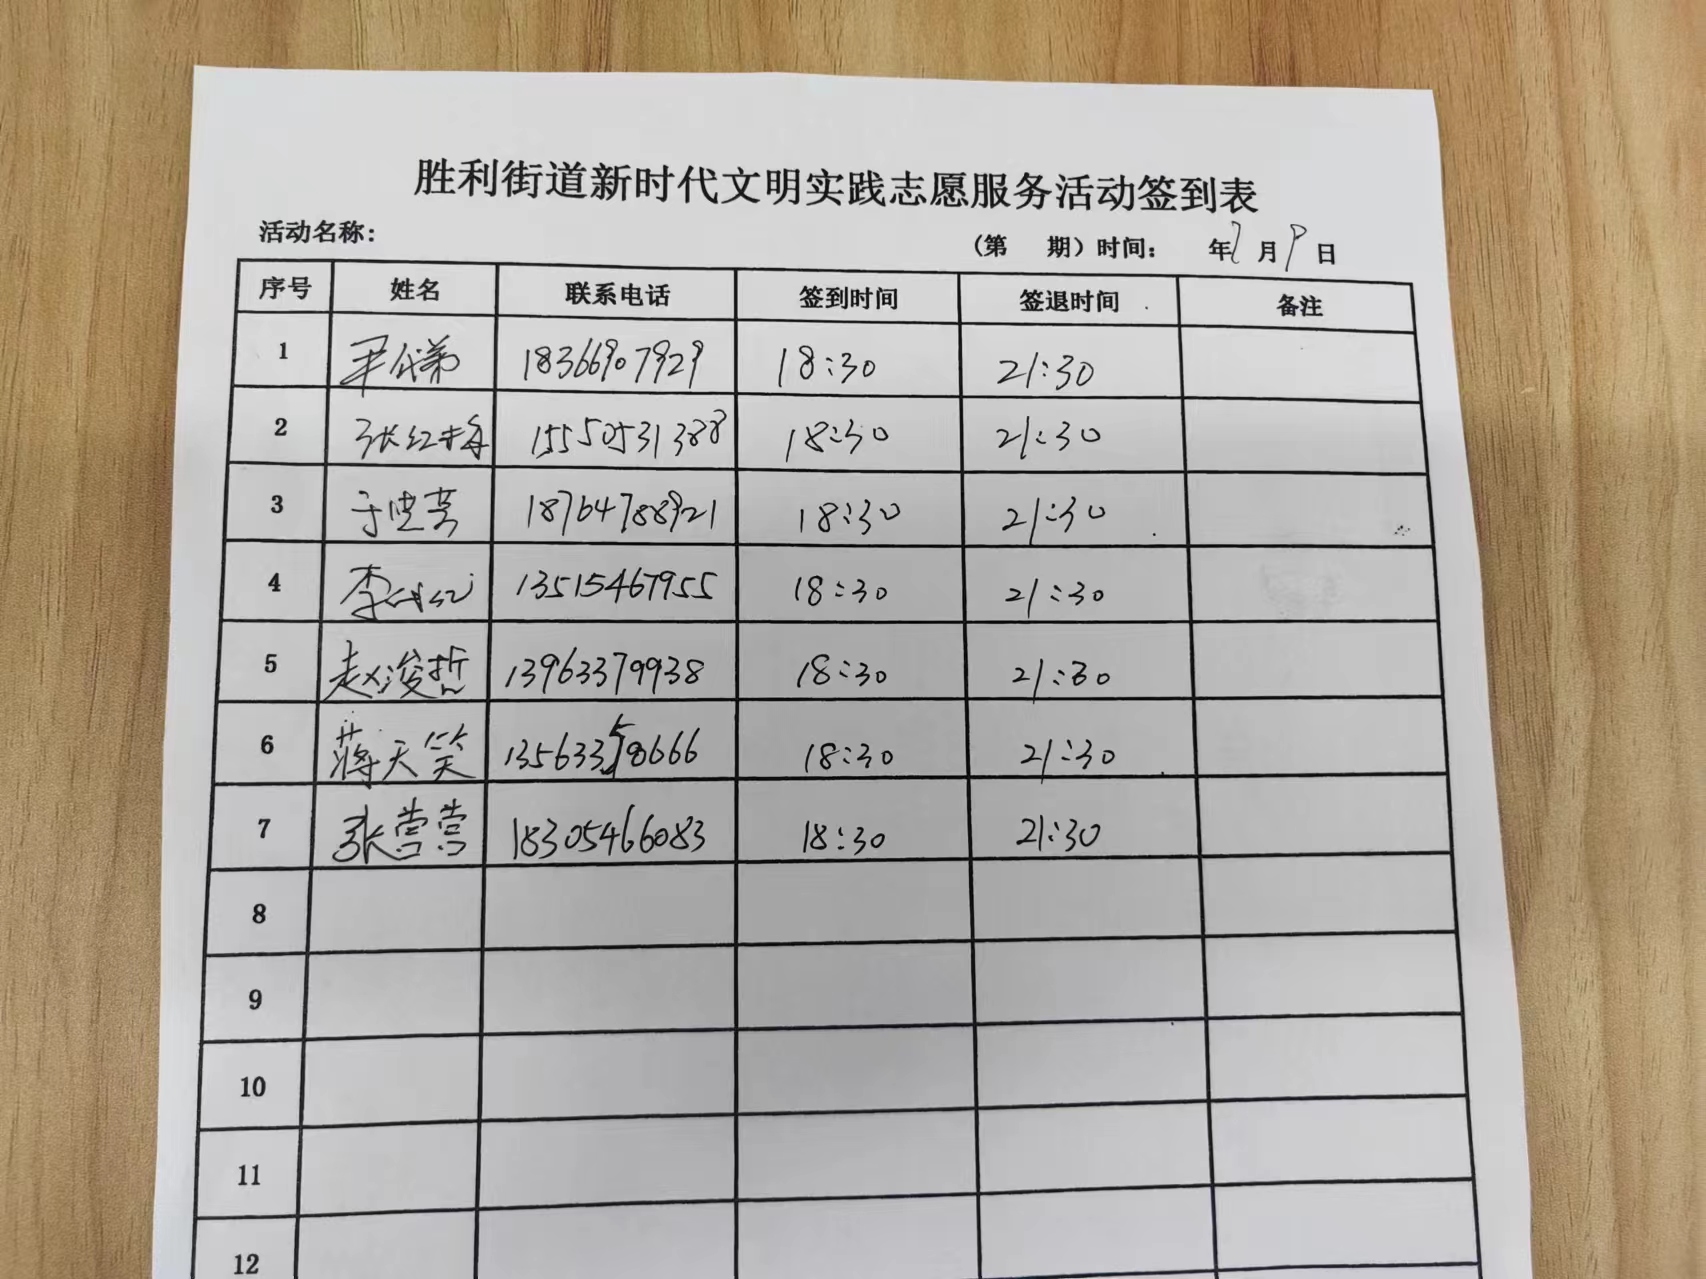 胜利街道新时代文明实践志愿服务活动签到表
活动名称： （第 期）时间： 年 月9日
序号 姓名 联系电话 签到时间 签退时间 备注
1 18366907929 18:30 21:30
2 张红梅 15550531388 18:30 21:30
3 18764788921 18:30 21:30
4 13515467955 18:30 21:30
5 赵浚哲 13963379938 18:30 21:30
6 蒋天笑 13563358666 18:30 21:30
7 张营营 18305466083 18:30 21:30
8
9
10
11
12